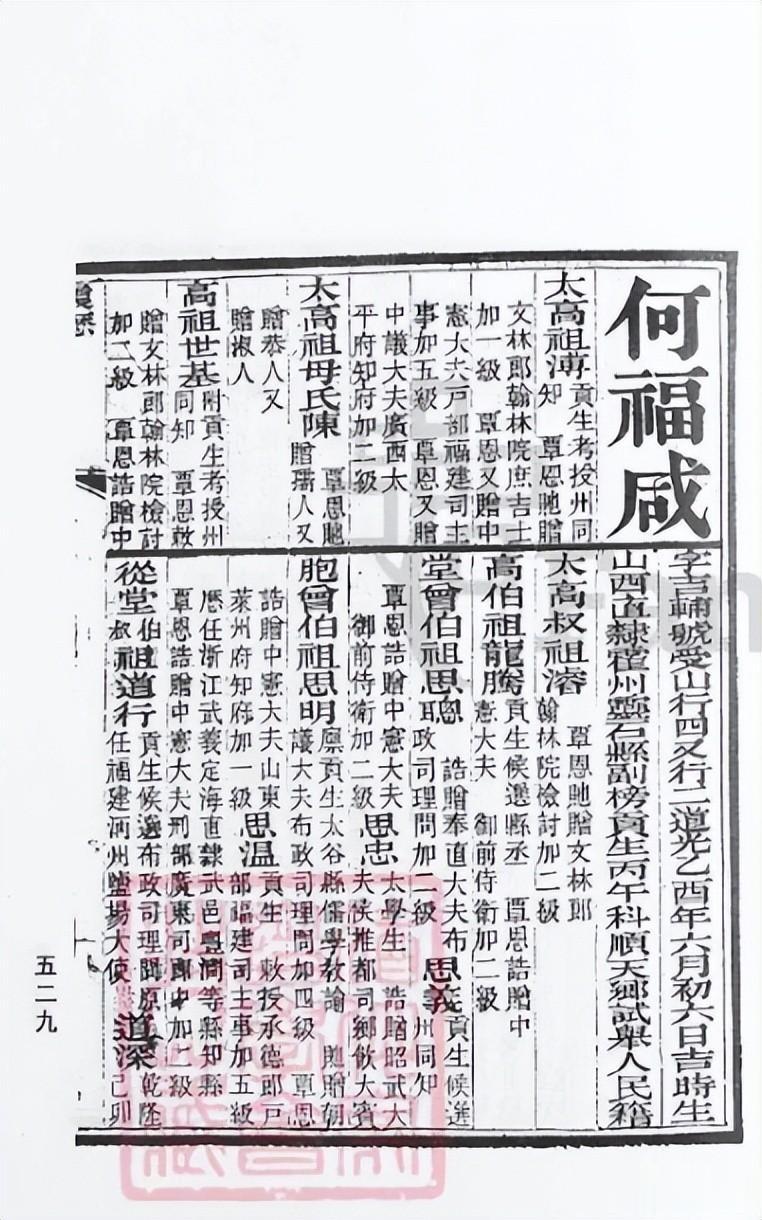 何福咸
字吉輔號受山行四又行二道光乙酉年六月初六日吉時生
山西直隸霍州靈石縣副榜貢生丙午科順天鄉試舉人民籍
太高祖溥
貢生考授州同
知 覃恩馳贈
文林郎翰林院庶吉士
加一級 覃恩又贈中
憲大夫戸部福建司主
事加五級 覃恩又贈
中議大夫廣西太
平府知府加二級
太高祖母氏陳
覃恩馳
贈孺人又
贈恭人又
贈淑人
高祖世基
附貢生考授州
同知 覃恩敕
贈文林郎翰林院檢討
加二級 覃恩誥贈中
太高叔祖溶
覃恩馳贈文林郎
翰林院檢討加二級
高伯祖龍騰
貢生候選縣丞 覃恩誥贈中
憲大夫 御前侍衛加二級
堂曾伯祖思聰
誥贈奉直大夫布
政司理問加二級
思義
貢生候選
州同知
覃恩誥贈中憲大夫
御前侍衛加二級
思忠
太學生 誥贈昭武大
夫侯推都司鄉飲大賓
胞曾伯祖思明
廪貢生太谷縣儒學教諭 馳贈朝
議大夫布政司理問加四級 覃恩
誥贈中憲大夫山東
萊州府知府加一級
思温
貢生 敕授承德郎戸
部福建司主事加五級
歷任浙江武義定海直隸武邑
等縣知縣
覃恩誥贈中憲大夫刑部廣東司郎中加二級
從堂伯叔祖道行
貢生候選布政司理問原
任福建浉州鹽場大使
道深
乾隆
己卯
五二九